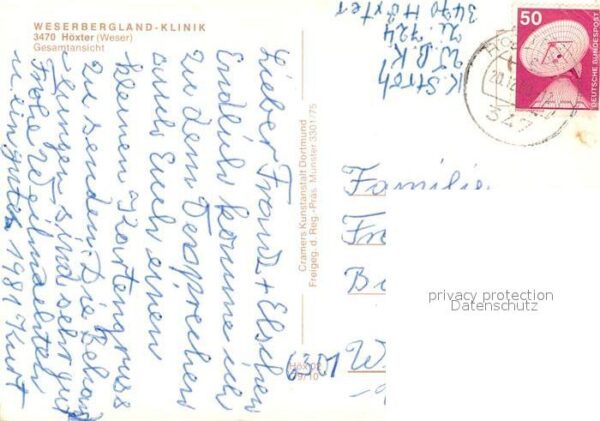 WESERBERGLAND-KLINIK
3470 Höxter (Weser)
Gesamtansicht
Lieber Franz + Elschen
Endlich komme ich
zu dem Versprechen
auch Euch einen
kleinen Kartengruss
zu senden. Die Behand
lungen sind sehr gut
Frohe Weihnachten
u. ein gutes 1981 Kurt
Cramers Kunstanstalt Dortmund
Freigeg. d. Reg.-Präs. Münster 3301/75
Höx 02
79/10
K. Stroh
W. B. K.
Zi. 724
3470 Höxter
50
DEUTSCHE BUNDESPOST
347
Familie
Fr
6301 W
privacy protection
Datenschutz